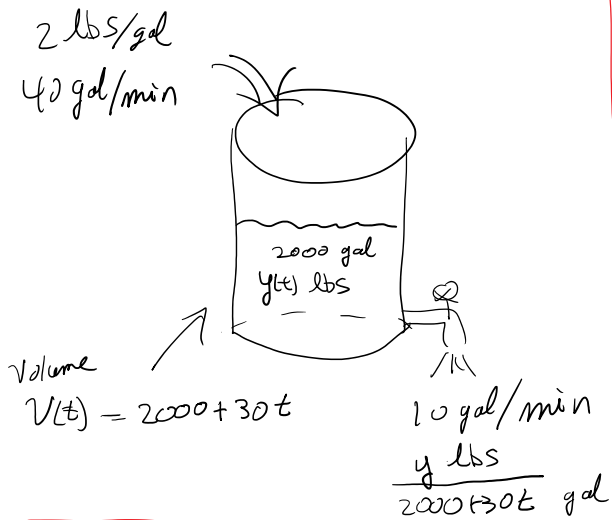 2 lbs/gal
40 gal/min
2000 gal
y(t) lbs
Volume
V(t) = 2000+30t
10 gal/min
y lbs
2000+30t gal